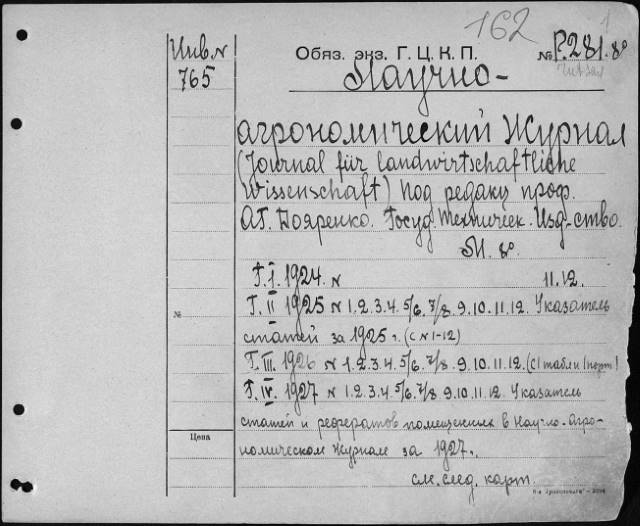 162
Инв. N
765
Обяз. экз. Г. Ц. К. П.
№ Р.281. 8°
Научно-
агрономический Журнал
(Journal für landwirtschaftliche
Wissenschaft) Под редакц. проф.
А.Г. Дояренко. Госуд. Техничек. Изд-ство.
М. 8°
Г. I. 1924. N 11.12.
Г. II 1925 N 1.2.3.4. 5/6. 7/8. 9.10.11.12. Указатель
статей за 1925 г. (с N 1-12)
Г. III. 1926 N 1.2.3.4. 5/6. 7/8. 9.10.11.12. (с 1 табл. и 1 порт.)
Г. IV. 1927 N 1.2.3.4. 5/6. 7/8 9.10.11.12. Указатель
статей и рефератов помещенных в Научно-Агро-
номическом Журнале за 1927 г.
см. след. карт.
№
Цена